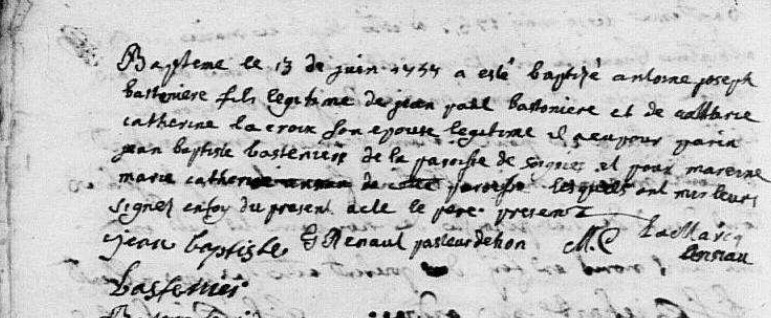 Bapteme le 13 de juin 1755 a esté baptizé antoine joseph
bastoniere fils legitime de jean paul bastoniere et de Marie
catherine la croix son epouse legitime il a eu pour parin
jean baptiste basteniere de la paroisse de soignies et pour marenne
marie catherine de cette paroisse lesquels ont mis leurs
signes en foy du present acte le pere present
jean baptiste G Renaul pasteur de hon M. C La Marcq
basteniér